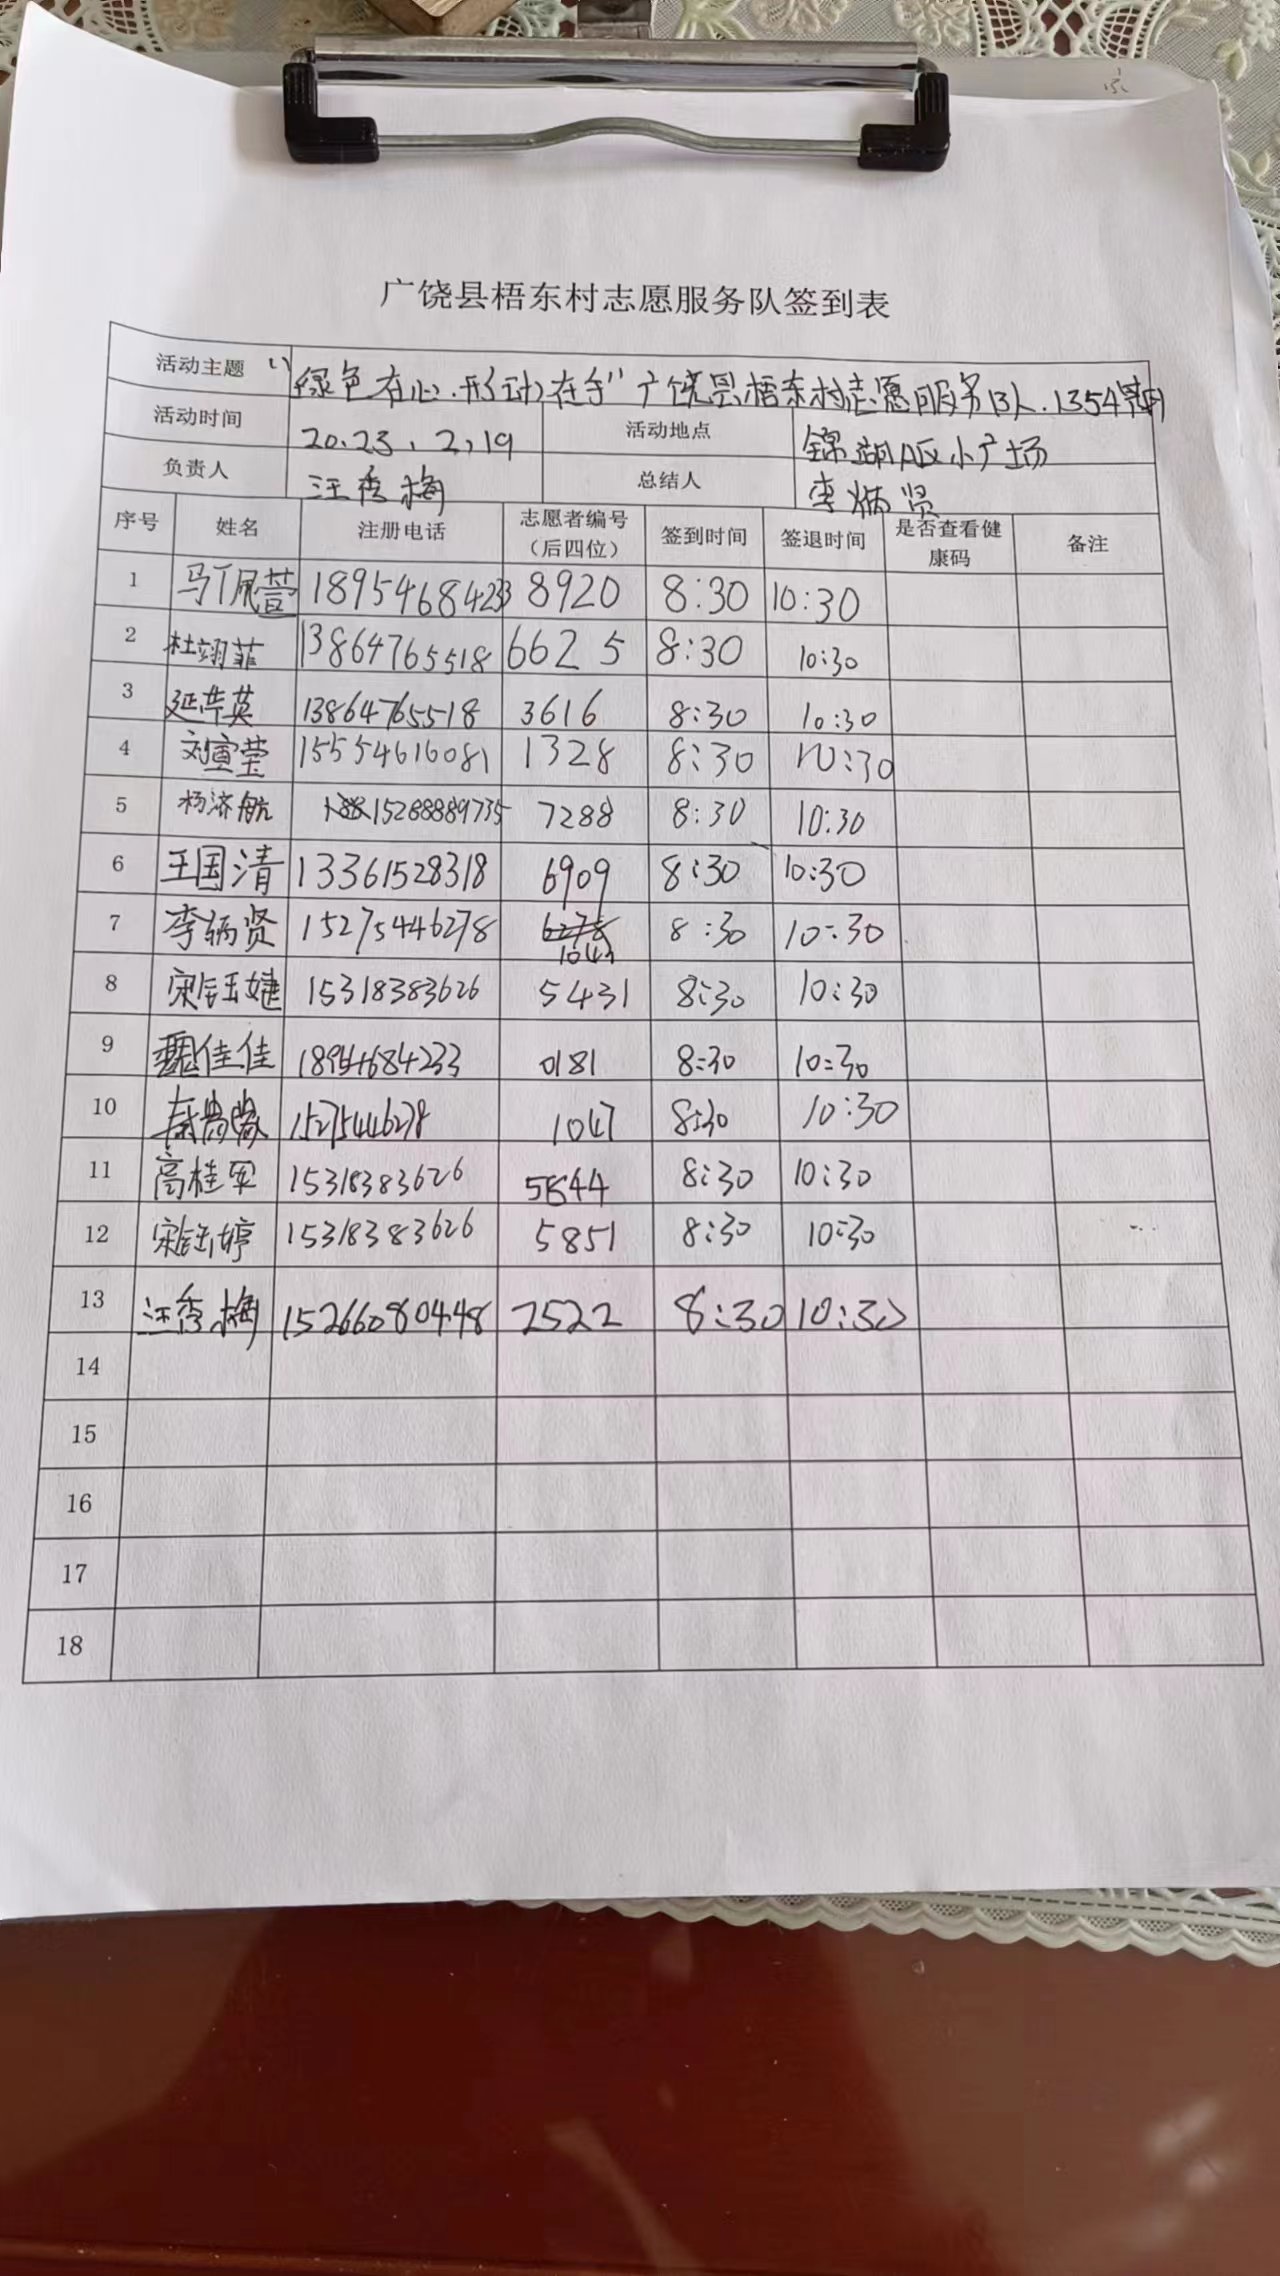 广饶县梧东村志愿服务队签到表
活动主题 “绿色在心.形动在手"广饶县梧东村志愿服务队.1354期
活动时间 2023.2,19 活动地点 锦湖A区小广场
负责人 汪秀梅 总结人 李炳贤
序号 姓名 注册电话 志愿者编号（后四位） 签到时间 签退时间 是否查看健康码 备注
1 马佩萱 18954684233 8920 8:30 10:30
2 杜翊菲 13864765518 6625 8:30 10:30
3 延华英 13864765518 3616 8:30 10:30
4 刘宣莹 15554616081 1328 8:30 10:30
5 杨济航 15288889735 7288 8:30 10:30
6 王国清 13361528318 6909 8:30 10:30
7 李炳贤 15275446278 8:30 10:30
8 宋钰婕 15318383626 5431 8:30 10:30
9 魏佳佳 18954684233 0181 8:30 10:30
10 15275446278 1047 8:30 10:30
11 高桂军 15318383626 5844 8:30 10:30
12 宋钰婷 15318383626 5851 8:30 10:30
13 汪秀梅 15266080448 2522 8:30 10:30
14
15
16
17
18